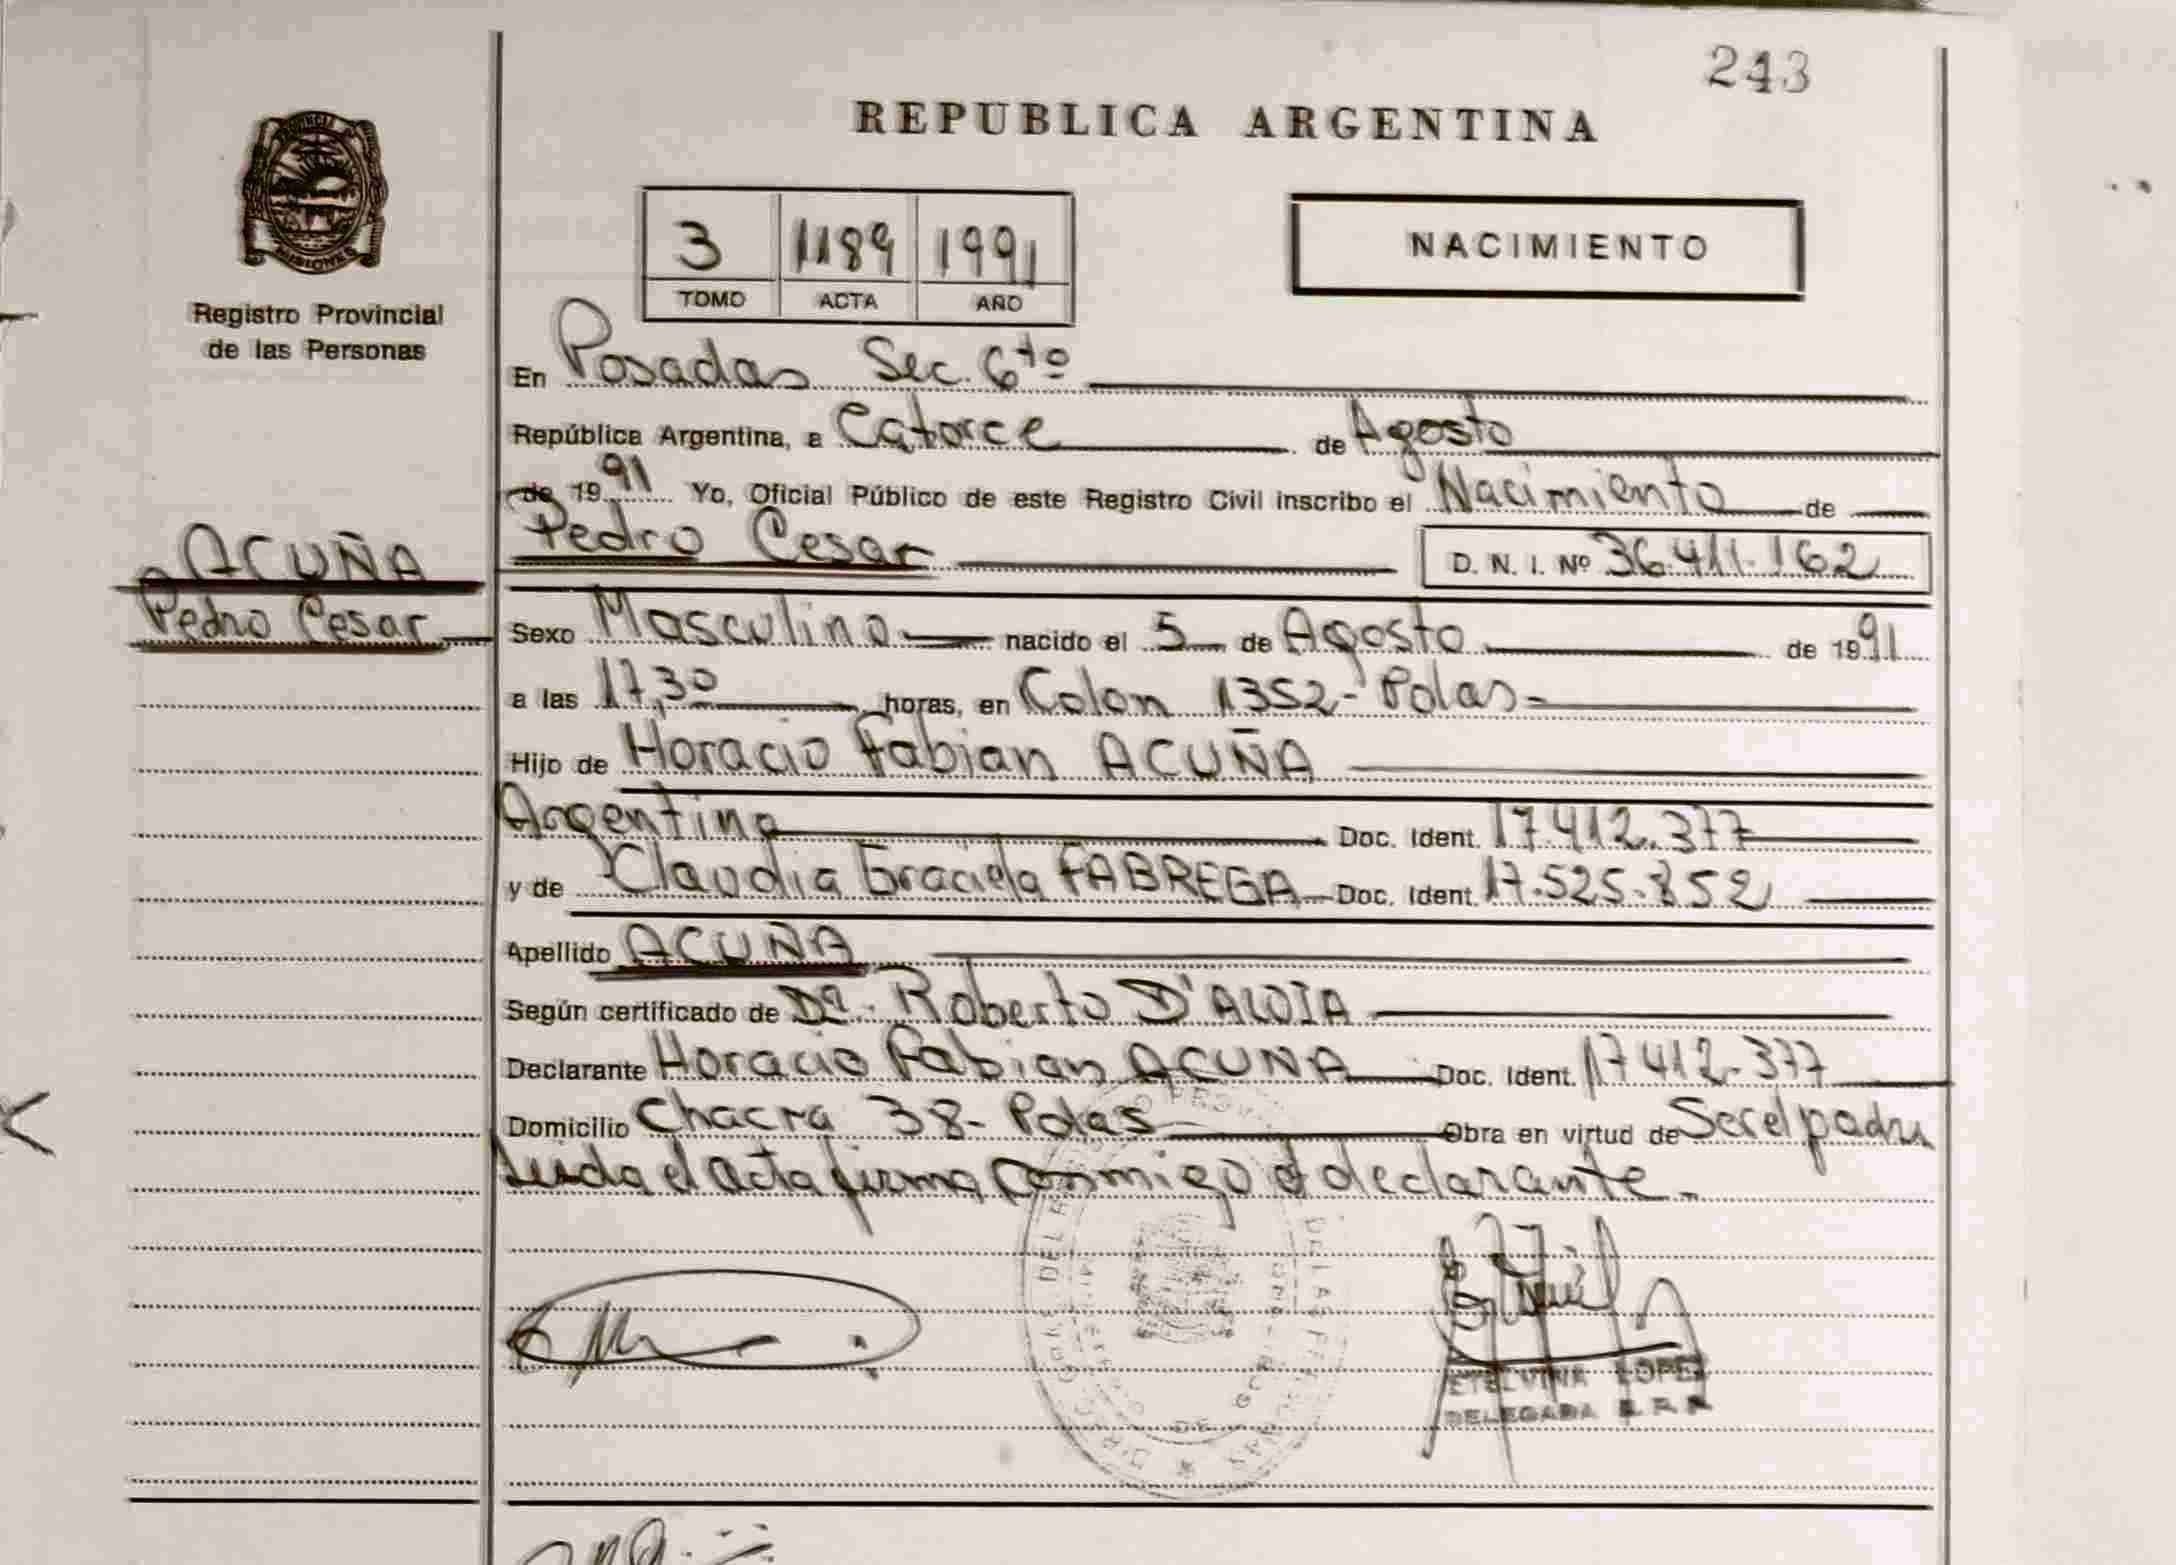 243
REPUBLICA ARGENTINA
NACIMIENTO
3 1189 1991
TOMO ACTA AÑO
MISIONES
Registro Provincial
de las Personas
En Posadas Sec. 6tº
República Argentina, a Catorce de Agosto
de 1991 Yo, Oficial Público de este Registro Civil inscribo el Nacimiento de
ACUÑA
Pedro Cesar
Pedro Cesar D. N. I. Nº 36.411.162
Sexo Masculino nacido el 5 de Agosto de 1991
a las 17,30 horas, en Colon 1352- Pdas-
Hijo de Horacio Fabian ACUÑA
Argentino Doc. Ident. 17.412.377
y de Claudia Graciela FABREGA Doc. Ident. 17.525.852
Apellido ACUÑA
Según certificado de Dr. Roberto D'ALOIA
Declarante Horacio Fabian ACUNA Doc. Ident. 17412-377
Domicilio Chacra 38- Pdas Obra en virtud de Ser el padre
Leida el acta firma conmigo el declarante.-
ETELVINA LOPEZ
DELEGADA R. P. P.